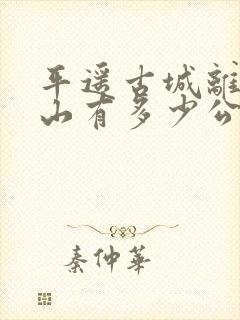 平遥古城離
山有多少公
秦仲華